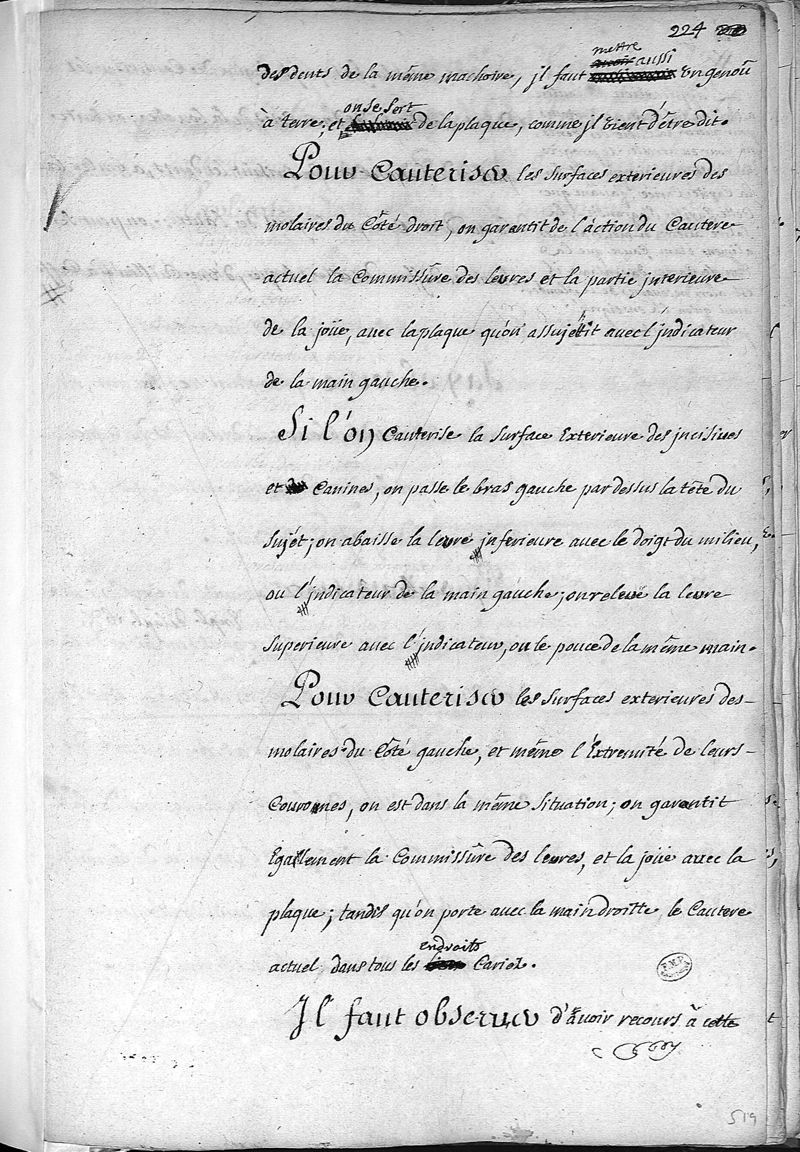 224
mettre
des dents de la même machoire, jl faut aussi En genoû
on se sert
à terre; et de la plaque, comme jl vient d'être dit.
Pour Cauteriser les surfaces exterieures des
molaires du Côté droit, on garantit de l'action du Cautere
actuel la Commissûre des levres et la partie jnterieure
de la joüe, avec la plaque qu'on assujétit avec l'jndicateur
de la main gauche.
Si l'on Cauterise la surface Exterieure des jncisives
et Canines, on passe le bras gauche par dessus la tête du
sujét; on abaisse la levre jnferieure avec le doigt du milieu,
ou l'jndicateur de la main gauche; on releve la levre
superieure avec l'jndicateur, ou le pouce de la même main.
Pour Cauteriser les surfaces exterieures des
molaires du Côté gauche, et même l'Extremité de leurs
Couronnes, on est dans la même situation; on garentit
Egallement la Commissûre des levres, et la joüe avec la
plaque; tandis qu'on porte avec la main droitte le Cautere
endroits
actuel dans tous les Cariez.
Il faut observer d'avoir recours à cette
519